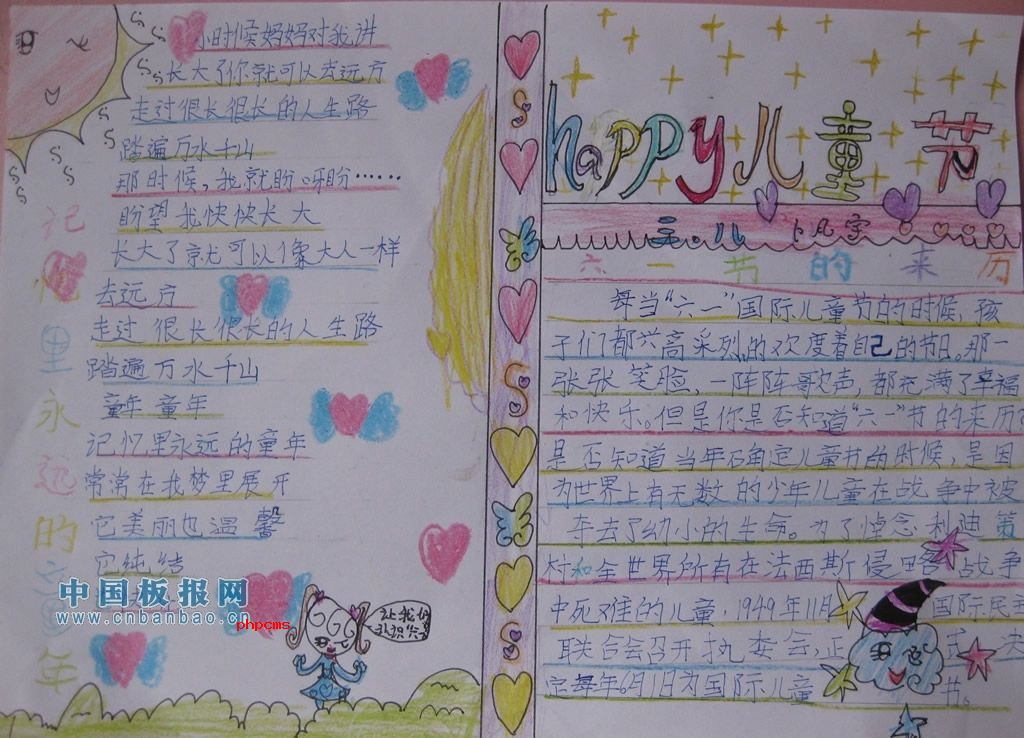 小时候妈妈对我讲
长大了你就可以去远方
走过很长很长的人生路
踏遍万水千山
那时候,我就盼呀盼……
盼望我快快长大
长大了就可以像大人一样
去远方
走过很长很长的人生路
踏遍万水千山
童年童年
记忆里永远的童年
常常在我梦里展开
它美丽也温馨
它纯结
记忆里永远的童年
中国板报网
www.cnbanbao.cn
phpcms
让我们
Happy儿童节
三.八
六一节的来历
每当“六一”国际儿童节的时候,孩
子们都兴高采列的欢度着自己的节日。那一
张张笑脸,一阵阵歌声,都充满了幸福
和快乐。但是你是否知道“六一”节的来历?
是否知道当年确定儿童节的时候,是因
为世界上有无数的少年儿童在战争中被
夺去了幼小的生命。为了悼念利迪策
村和全世界所有在法西斯侵略战争
中死难的儿童,1949年11月国际民主
联合会召开执委会,正式决
定每年6月1日为国际儿童节。